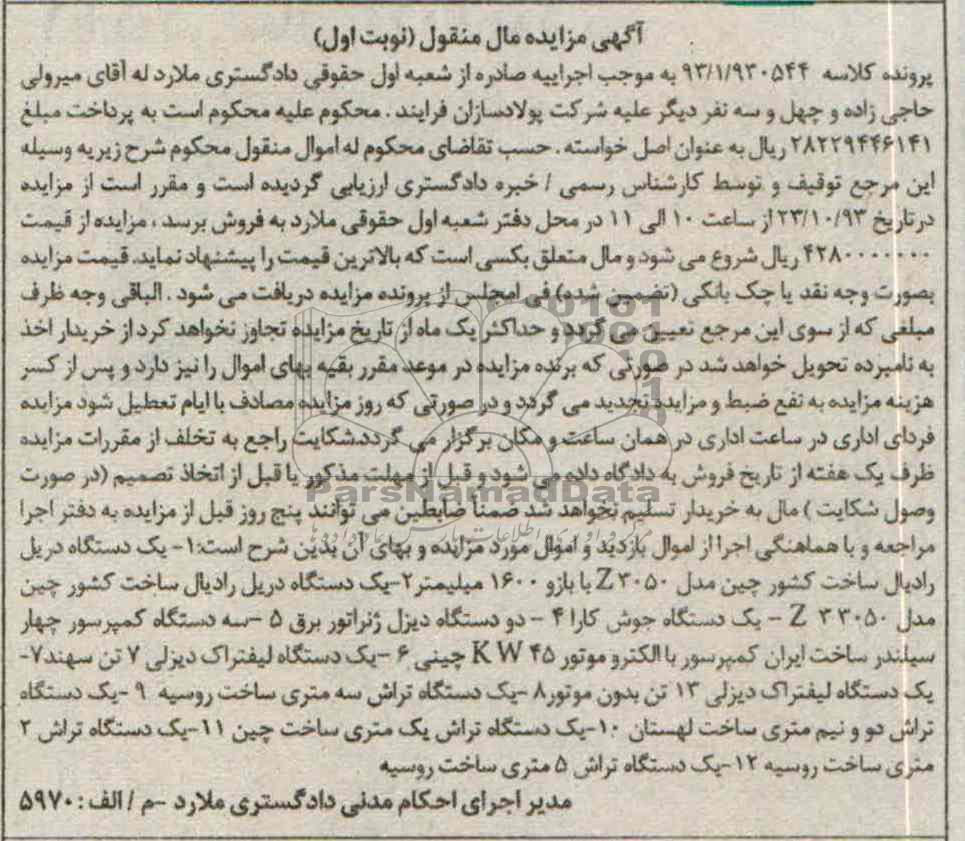 آگهی مزایده مال منقول (نوبت اول)
پرونده کلاسه ۹۳/۱/۹۳۰۵۴۴ به موجب اجراییه صادره از شعبه اول حقوقی دادگستری ملارد له آقای میرولی
حاجی زاده و چهل و سه نفر دیگر علیه شرکت پولادسازان فرایند . محکوم علیه محکوم است به پرداخت مبلغ
۲۸۲۲۹۴۴۶۱۴۱ ریال به عنوان اصل خواسته . حسب تقاضای محکوم له اموال منقول محکوم شرح زیر به وسیله
این مرجع توقیف و توسط کارشناس رسمی / خبره دادگستری ارزیابی گردیده است و مقرر است از مزایده
درتاریخ ۲۳/۱۰/۹۳ از ساعت ۱۰ الی ۱۱ در محل دفتر شعبه اول حقوقی ملارد به فروش برسد ، مزایده از قیمت
۴۲۸۰۰۰۰۰۰۰ ریال شروع می شود و مال متعلق بکسی است که بالاترین قیمت را پیشنهاد نماید. قیمت مزایده
بصورت وجه نقد یا چک بانکی (تضمین شده) فی امجلس از پرونده مزایده دریافت می شود . الباقی وجه ظرف
مبلغی که از سوی این مرجع تعیین می گردد و حداکثر یک ماه از تاریخ مزایده تجاوز نخواهد کرد از خریدار اخذ
به نامبرده تحویل خواهد شد در صورتی که برنده مزایده در موعد مقرر بقیه بهای اموال را نیز دارد و پس از کسر
هزینه مزایده به نفع ضبط و مزایده تجدید می گردد و در صورتی که روز مزایده مصادف با ایام تعطیل شود مزایده
فردای اداری در ساعت اداری در همان ساعت و مکان برگزار می گردد.شکایت راجع به تخلف از مقررات مزایده
ظرف یک هفته از تاریخ فروش به دادگاه داده می شود و قبل از مهلت مذکور یا قبل از اتخاذ تصمیم (در صورت
وصول شکایت ) مال به خریدار تسلیم نخواهد شد ضمنا ضابطین می توانند پنج روز قبل از مزایده به دفتر اجرا
مراجعه و با هماهنگی اجرا از اموال بازدید و اموال مورد مزایده و بهای آن بدین شرح است:۱- یک دستگاه دریل
رادیال ساخت کشور چین مدل Z۳۰۵۰ با بازو ۱۶۰۰ میلیمتر ۲-یک دستگاه دریل رادیال ساخت کشور چین
مدل Z ۳ ۳۰۵۰ - یک دستگاه جوش کارا ۴ - دو دستگاه دیزل ژنراتور برق ۵ -سه دستگاه کمپرسور چهار
سیلندر ساخت ایران کمپرسور با الکترو موتور ۴۵ KW چینی ۶ -یک دستگاه لیفتراک دیزلی ۷ تن سهند۷-
یک دستگاه لیفتراک دیزلی ۱۳ تن بدون موتور۸ -یک دستگاه تراش سه متری ساخت روسیه ۹ -یک دستگاه
تراش دو و نیم متری ساخت لهستان ۱۰-یک دستگاه تراش یک متری ساخت چین ۱۱-یک دستگاه تراش ۲
متری ساخت روسیه ۱۲-یک دستگاه تراش ۵ متری ساخت روسیه
مدیر اجرای احکام مدنی دادگستری ملارد -م / الف : ۵۹۷۰
ParsNamadData